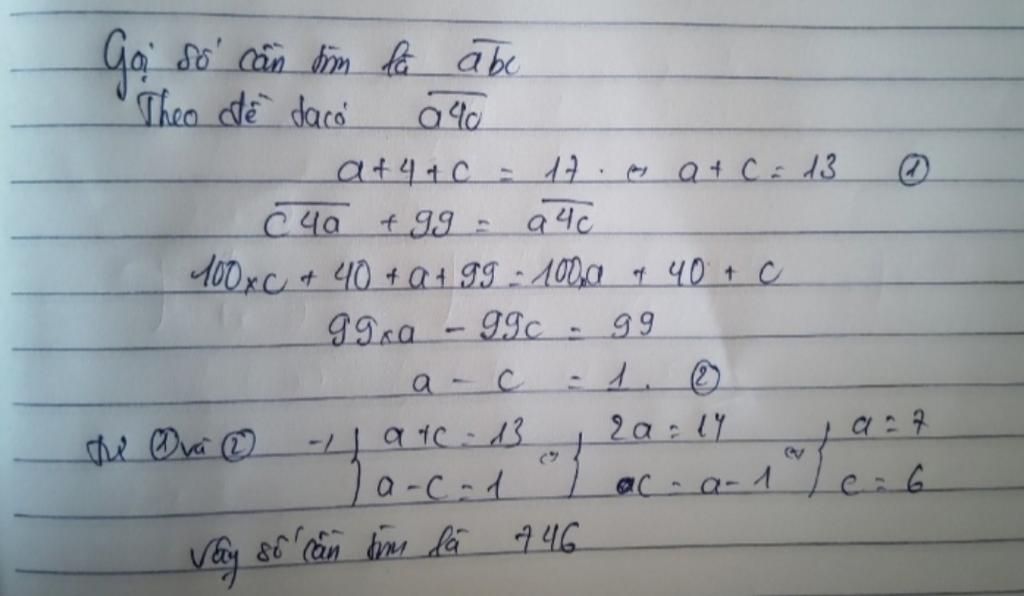 Gọi số cần tìm là a̅b̅c̅
Theo đề ta có a̅4̅c̅
a + 4 + c = 17 . ⇔ a + c = 13 ①
c̅4̅a̅ + 99 = a̅4̅c̅
100×c + 40 + a + 99 = 100×a + 40 + c
99×a - 99c = 99
a - c = 1 . ②
Từ ① và ② → { a + c = 13 ⇔ { 2a = 14 ⇔ { a = 7
a - c = 1 c = a - 1 c = 6
Vậy số cần tìm là 746